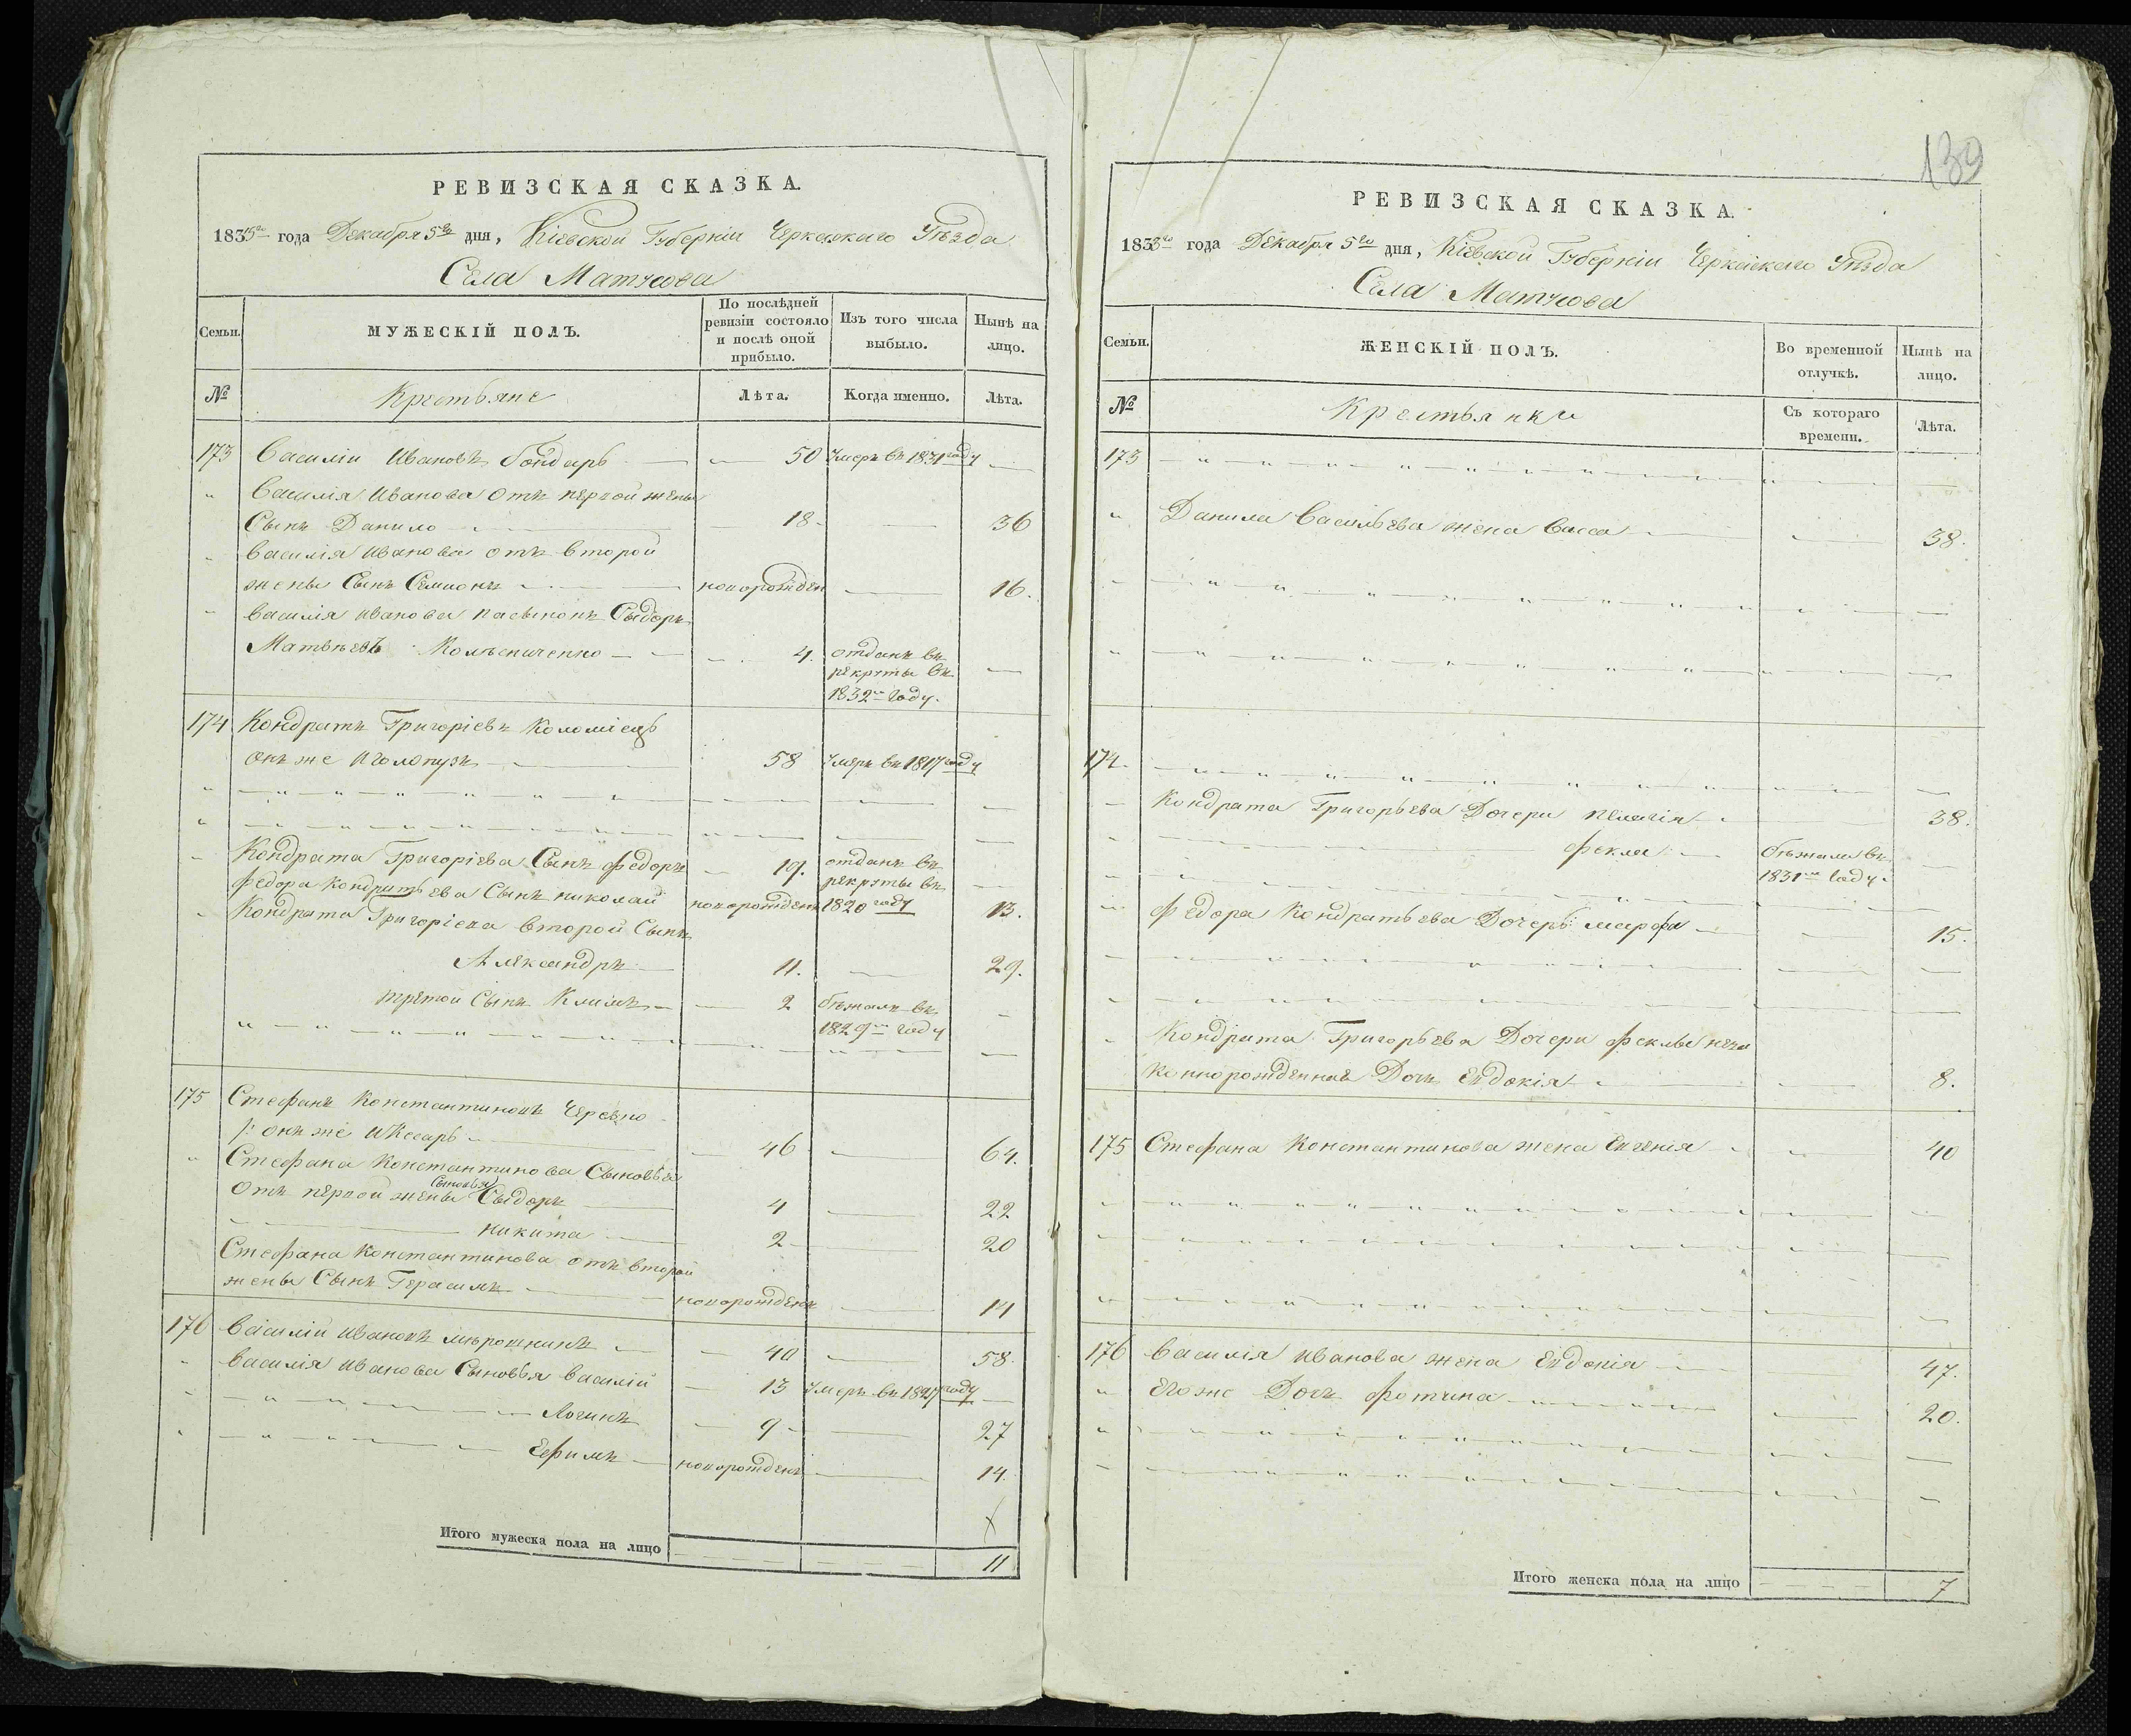 РЕВИЗСКАЯ СКАЗКА.
1835го года Декабря 5го дня, Кіевской Губерніи Черкаскаго Уѣзда
Села Матусова
Семьи.
МУЖЕСКІЙ ПОЛЪ.
По послѣдней ревизіи состояло и послѣ оной прибыло.
Изъ того числа выбыло.
Нынѣ на лицо.
№
Крестьяне
Лѣта.
Когда именно.
Лѣта.
173 Василій Ивановъ Бондарь 50 Умеръ въ 1831 году
Василія Иванова отъ первой жены
Сынъ Данило 18. 36
Василія Иванова отъ второй
жены Сынъ Семионъ новорожден 16.
Василія Иванова пасынокъ Сыдоръ
Матвѣевъ 4. отданъ въ
рекруты въ
1832м году.
174 Кондратъ Григоріевъ Коломіецъ
онъ же 58 Умеръ въ 1817 году
Кондрата Григоріева Сынъ Федоръ 19. отданъ въ
рекруты въ
Федора Кондратьева Сынъ Николай новорожденъ 1820 году 13.
Кондрата Григоріева второй Сынъ
Александръ 11. 29.
третой Сынъ Климъ 2 бѣжалъ въ
1829м году
175 Стефанъ Константиновъ
онъ же 46 64.
Стефана Константинова Сыновья
Отъ первой жены Сыновья Сыдоръ 4 22
Никита 2 20
Стефана Константинова отъ второй
жены Сынъ Герасимъ новорожденъ 14
176 Василій Ивановъ Мирошникъ 40 58.
Василія Иванова Сыновья Василій 13 Умеръ въ 1827 году
Логинъ 9 27
Ефимъ новорожденъ 14.
Х
Итого мужеска пола на лицо 11
139
РЕВИЗСКАЯ СКАЗКА.
1835го года Декабря 5го дня, Кіевской Губерніи Черкаскаго Уѣзда
Села Матусова
Семьи.
ЖЕНСКІЙ ПОЛЪ.
Во временной отлучкѣ.
Нынѣ на лицо.
№
Крестьянки
Съ котораго времени.
Лѣта.
173
Данила Васильева жена Васса 38.
174.
Кондрата Григорьева Дочери Пелагія 38.
Фекла бѣжала въ
1831м году.
Федора Кондратьева Дочерь Марфа 15.
Кондрата Григорьева Дочери Феклы неза
коннорожденная Дочь Евдокія 8.
175 Стефана Константинова жена Евгенія 40
176 Василія Иванова жена Евдокія 47.
Егоже Дочь Фотина 20.
Итого женска пола на лицо 7